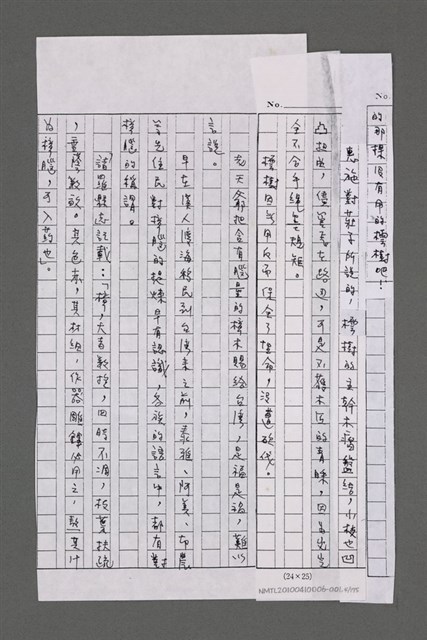 No.
的那棵沒有用的樗樹吧！
惠施對莊子所說的，樗樹的主幹木瘤盤結，小枝也凹
No.
凸扭曲，儘管長在路邊，可是不獲木匠的青睞，因為完全
全不合乎繩墨規矩。
樗樹因無用反而保全了性命，沒遭砍伐。
老天爺把含有腦量的樟木賜給台灣，是福是禍，難以
言說。
早在漢人渡海移民到台灣來之前，泰雅、阿美、布農
等先住民對樟腦的提煉早有認識，各族的語言中，都有對
樟腦的稱謂。
諸羅縣志記載：「樟，大者數抱，四時不凋，枝葉扶疏
，霜降數敗。其色赤，其材細，作器雕鏤必用之，熬其汁
為樟腦，可入藥也。
(24×25)
NMTL20100410006-001